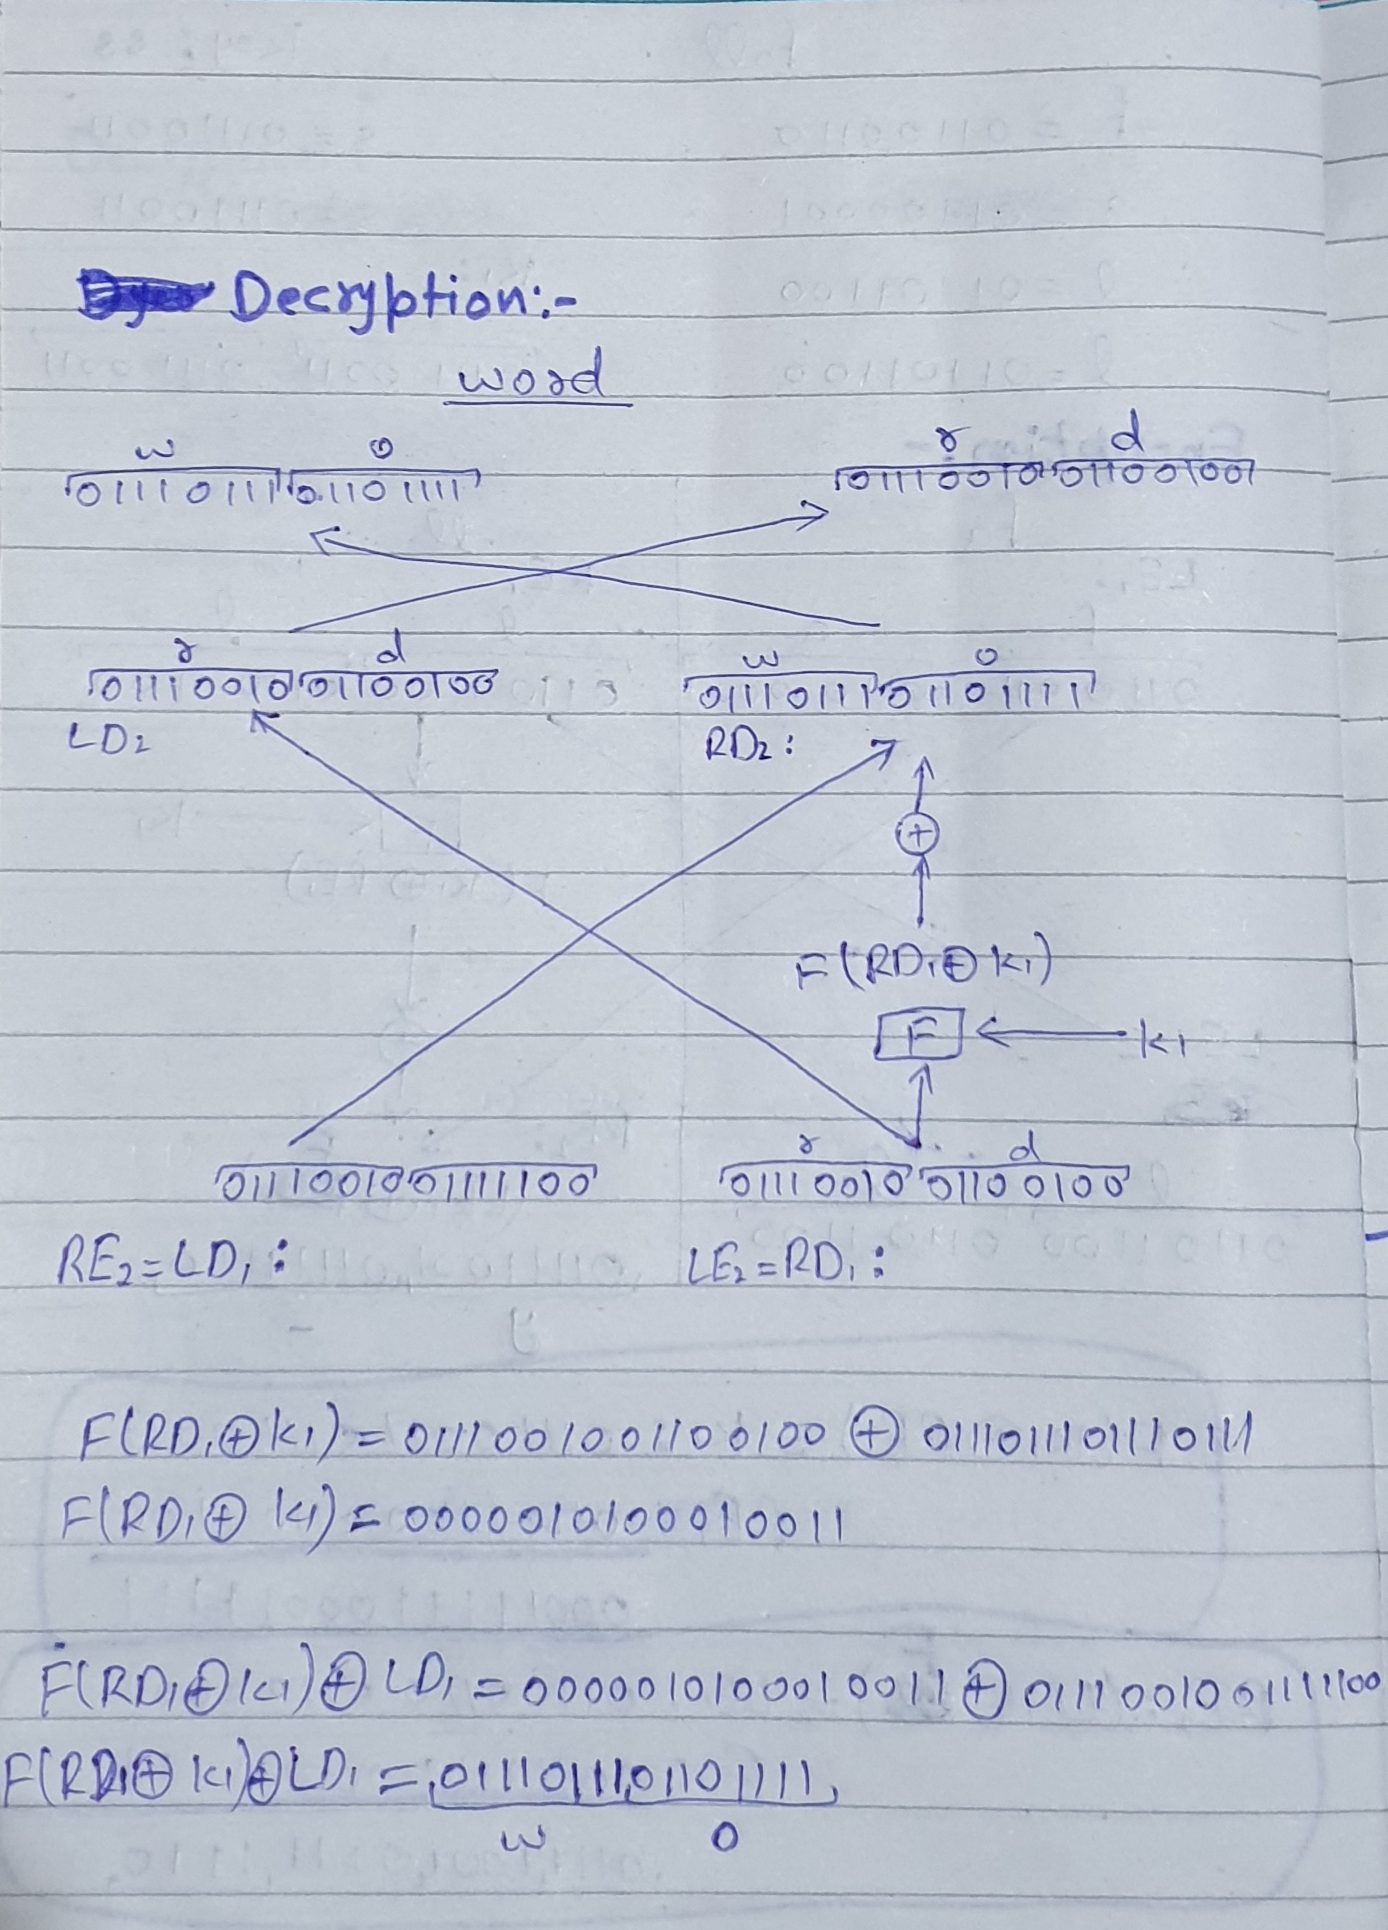 Decryption:-
word
w o r d
01110111 01101111 01110010 01100100
r d w o
01110010 01100100 01110111 01101111
LD2 RD2:
+
F(RD1⊕k1)
F k1
r d
01110010 01111100 01110010 01100100
RE2=LD1: LE2=RD1:
F(RD1⊕k1) = 0111001001100100 ⊕ 0111011101110111
F(RD1⊕ k1) = 0000010100010011
F(RD1⊕k1)⊕ LD1 = 0000010100010011 ⊕ 0111001001111100
F(RD1⊕ k1)⊕LD1 = 0111011101101111
w o